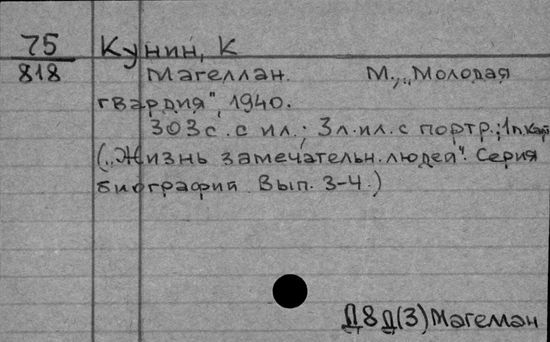 75 Кунин, К
818 Магеллан. М., „Молодая
гвардия", 1940.
303 с. с ил.; 3 л. ил. с портр.; 1 л. кар
(„Жизнь замечательн. людей". Серия
биографий. Вып. 3-4.)
Д8Д(3) Магеллан